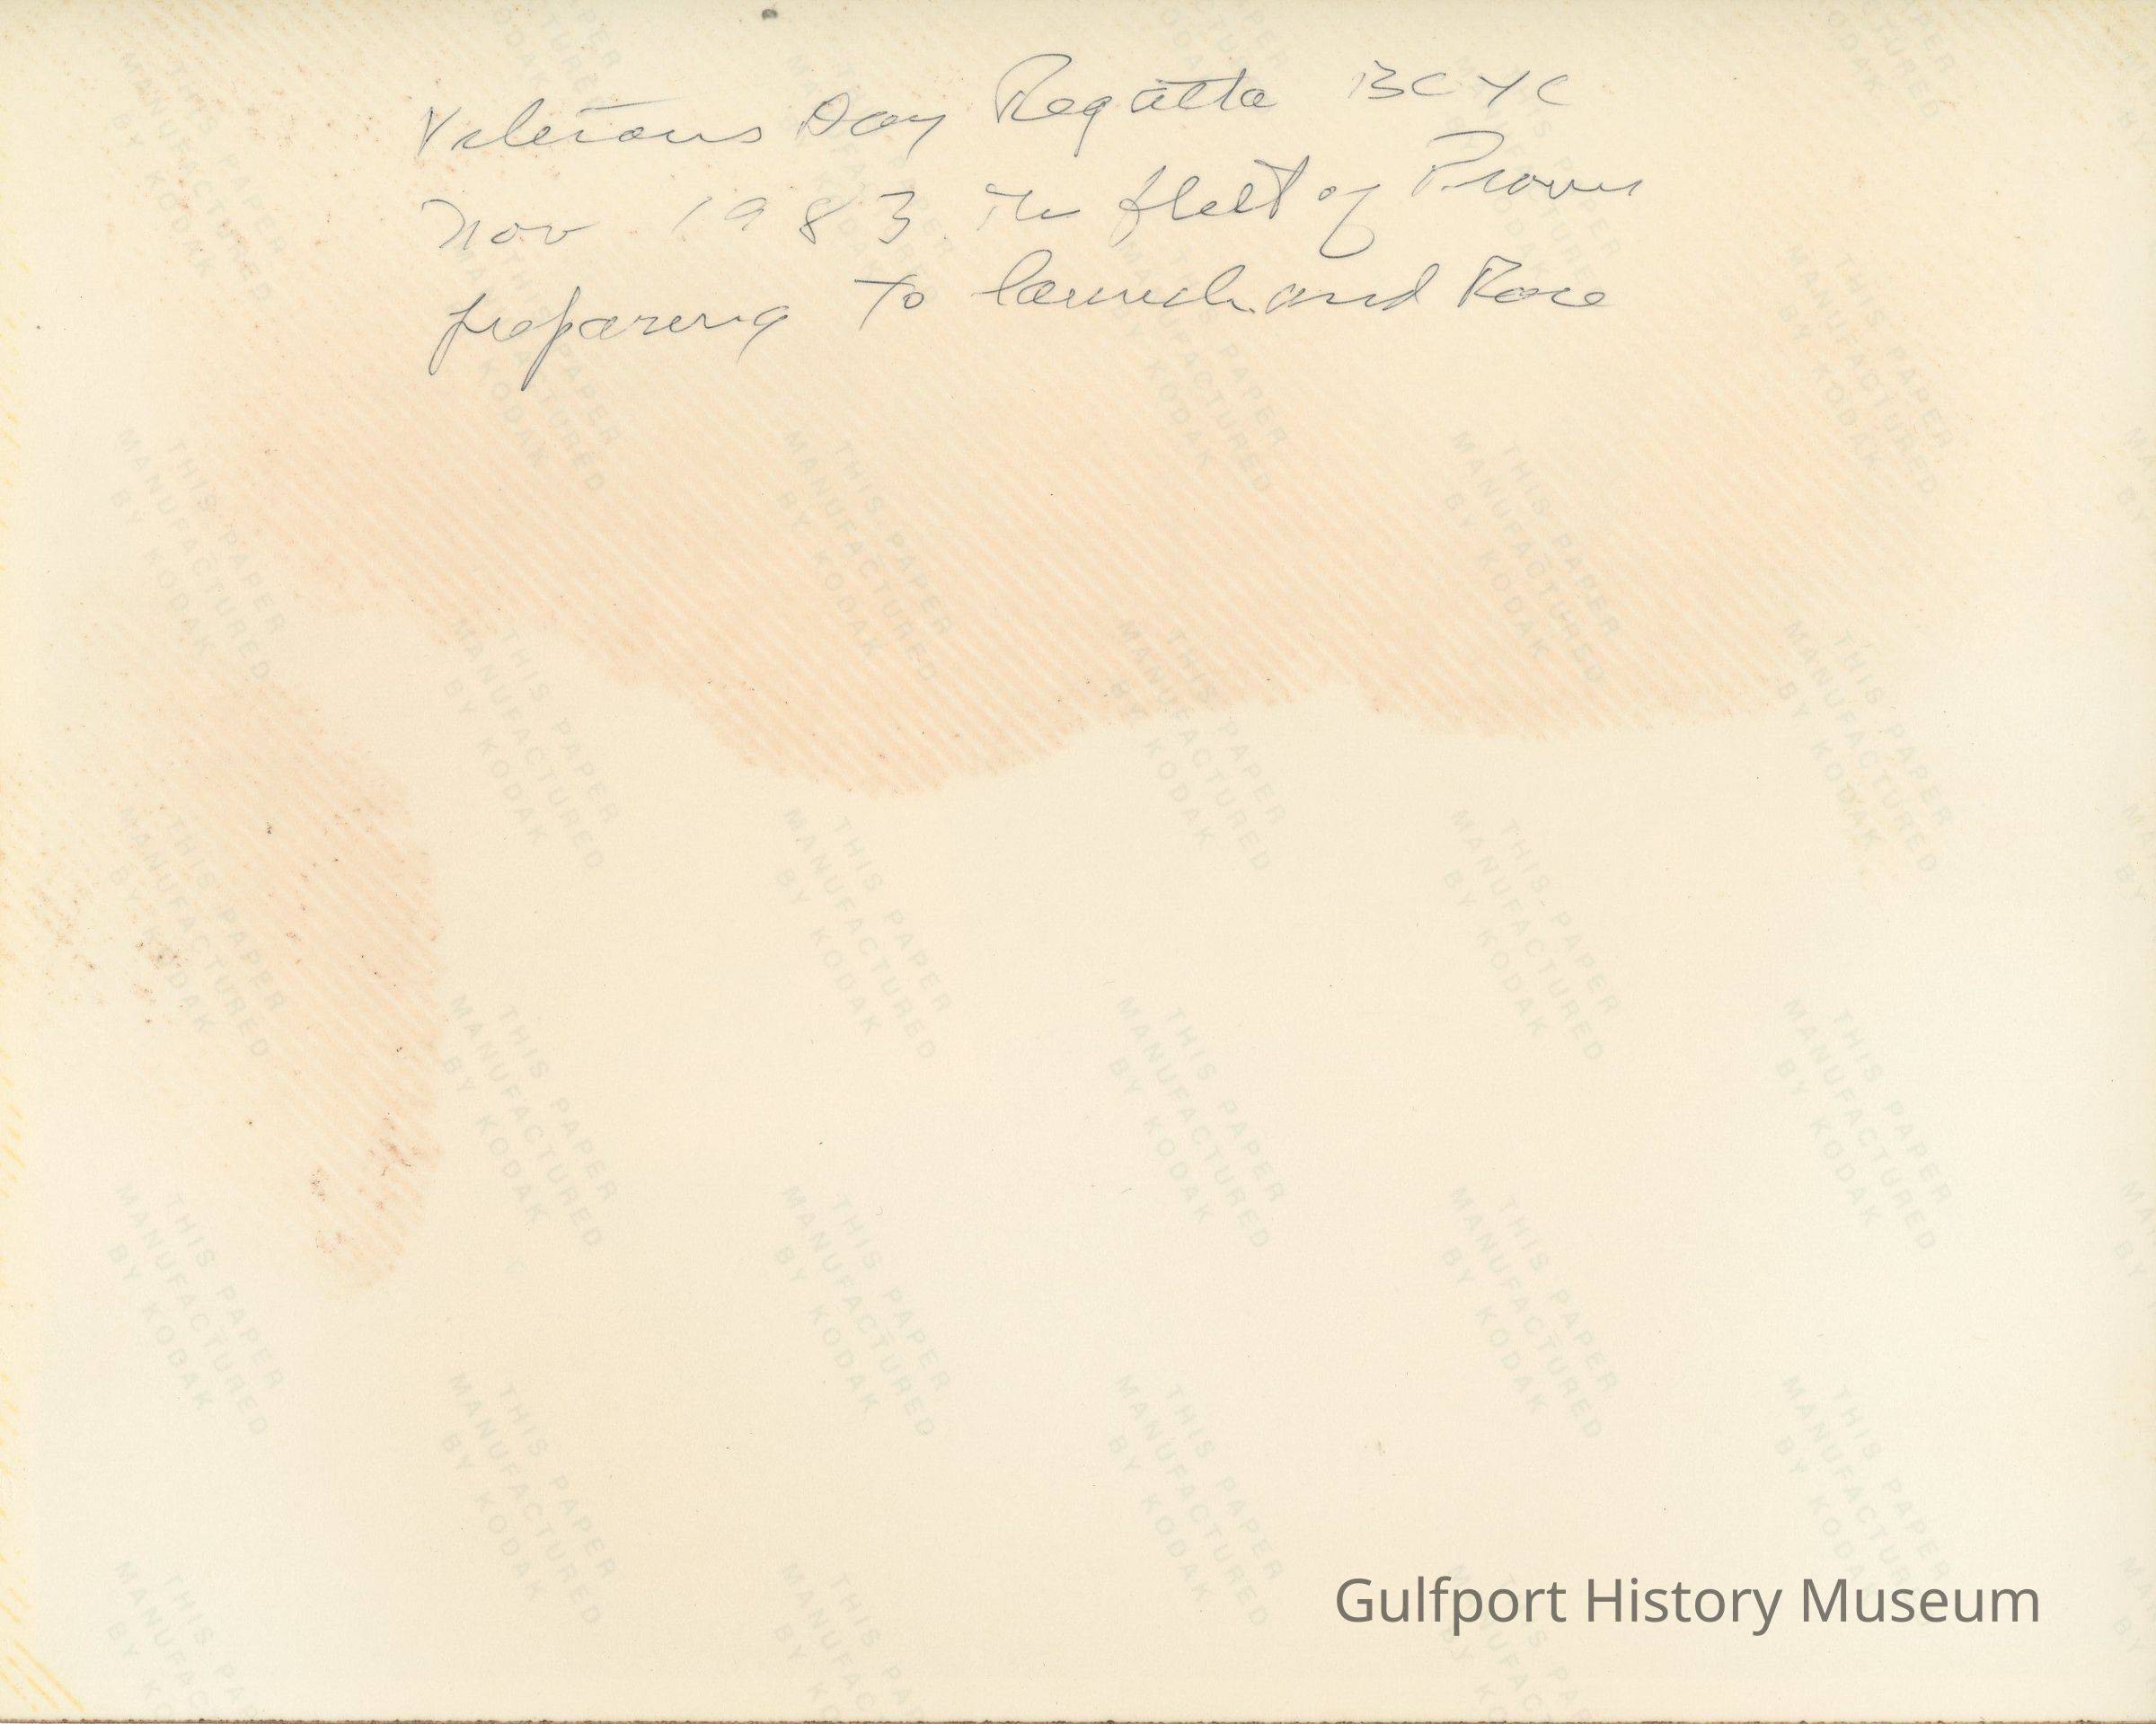 Veterans Day Regatta BCYC
Nov 1983. The fleet of Prams
preparing to launch and Race
THIS PAPER
MANUFACTURED
BY KODAK
Gulfport History Museum